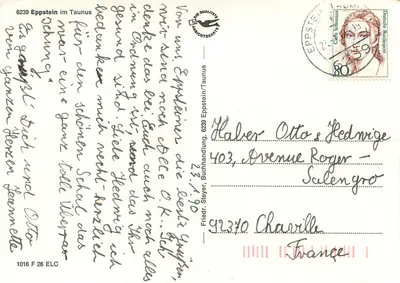 6239 Eppstein im Taunus
23.1.90
Von uns Eppsteiner die besten Grüße,
wir sind noch alle O.K. Ich
denke das bei Euch auch noch alles
in Ordnung ist, und das Ihr
gesund sind. Liebe Hedwig ich
bedanke mich recht herzlich
für den schönen Schal das
war eine ganz tolle Überra-
schung!
Es grüßt Dich und Otto
von ganzem Herzen Jeannette
1016 F 26 ELC
Friedr. Steyer, Buchhandlung, 6239 Eppstein/Taunus
EPPSTEIN
Deutsche Bundespost
80
Haber Otto & Hedwige
403, Avenue Roger-
Salengro
92370 Chaville
France